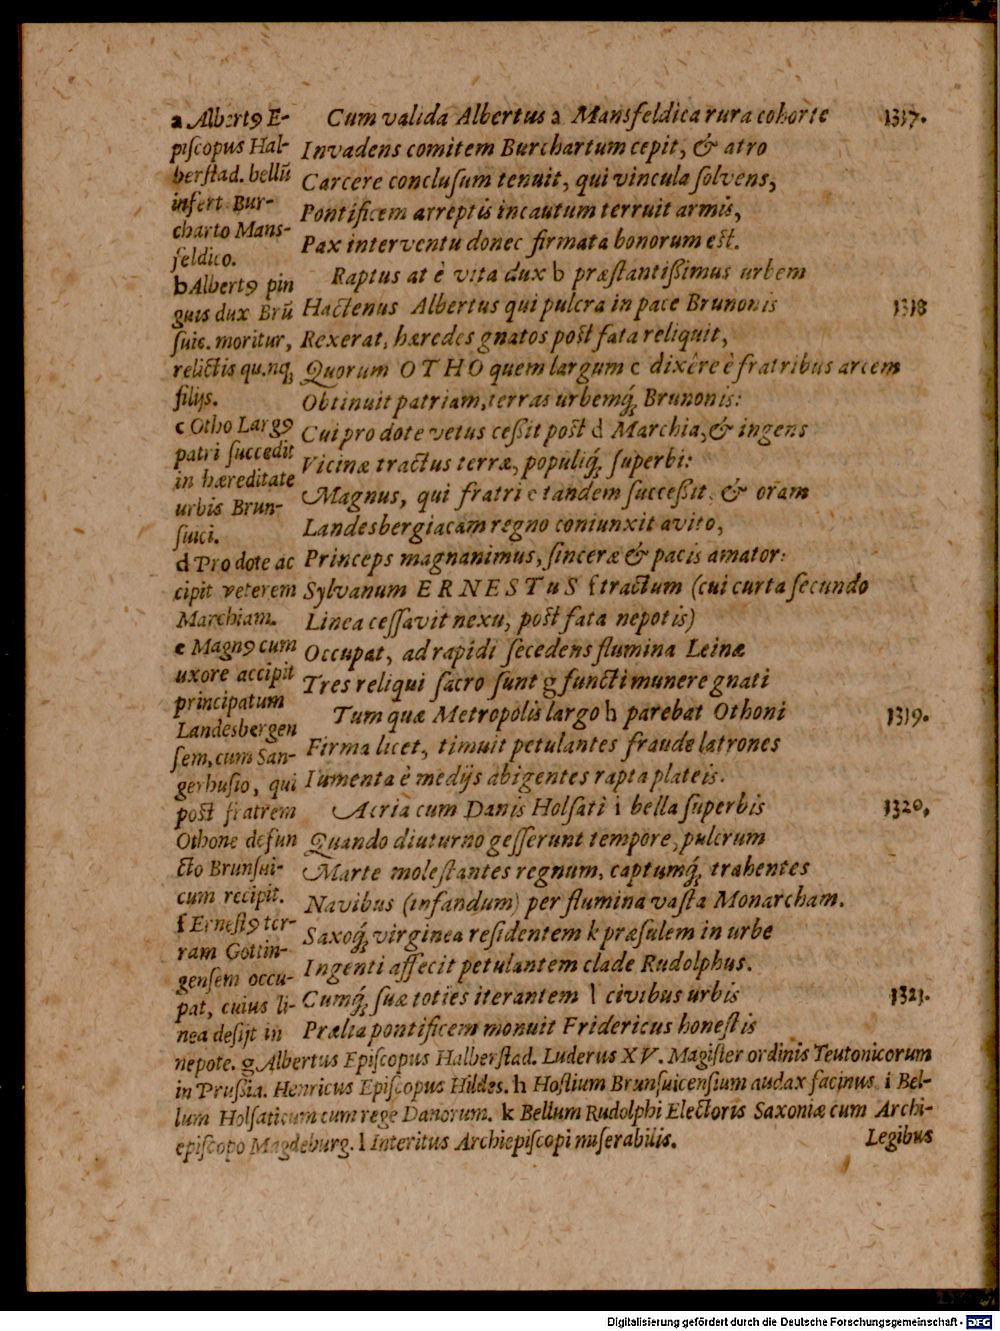 Cum valida Albertus a Mansfeldica rura cohorte 1317.
Invadens comitem Burchartum cepit, & atro
Carcere conclusum tenuit, qui vincula solvens,
Pontificem arreptis incautum terruit armis,
Pax interventu donec firmata bonorum est.
Raptus at è vita dux b præstantißimus urbem
Hactenus Albertus qui pulcra in pace Brunonis 1318
Rexerat, hæredes gnatos post fata reliquit,
Quorum OTHO quem largum c dixêre è fratribus arcem
Obtinuit patriam, terras urbemq́; Brunonis:
Cui pro dote vetus ceßit post d Marchia, & ingens
Vicinæ tractus terræ, populiq́; superbi:
Magnus, qui fratri e tandem succeßit, & oram
Landesbergiacam regno coniunxit avito,
Princeps magnanimus, sinceræ & pacis amator:
Sylvanum ERNESTuS f tractum (cui curta secundo
Linea cessavit nexu, post fata nepotis)
Occupat, ad rapidi secedens flumina Leinæ
Tres reliqui sacro sunt g functi munere gnati
Tum quæ Metropolis largo h parebat Othoni 1319.
Firma licet, timuit petulantes fraude latrones
Iumenta è medijs abigentes rapta plateis.
Acria cum Danis Holsati i bella superbis 1320,
Quando diuturno gesserunt tempore, pulcrum
Marte molestantes regnum, captumq́; trahentes
Navibus (infandum) per flumina vasta Monarcham.
Saxoq́; virginea residentem k præsulem in urbe
Ingenti affecit petulantem clade Rudolphus.
Cumq́; suæ toties iterantem l civibus urbis 1321.
Prælia pontificem monuit Fridericus honestis
a Albertꝰ E-
piscopus Hal-
berstad. bellũ
infert Bur-
charto Mans-
feldico.
b Albertꝰ pin
guis dux Brũ
suic. moritur,
relictis quinq́;
filijs.
c Otho Largꝰ
patri succedit
in hæreditate
urbis Brun-
suici.
d Pro dote ac
cipit veterem
Marchiam.
e Magnꝰ cum
uxore accipit
principatum
Landesbergen
sem, cum San-
gerhusio, qui
post fratrem
Othone defun
cto Brunsui-
cum recipit.
f Ernestꝰ ter-
ram Gottin-
gensem occu-
pat, cuius li-
nea desijt in
nepote. g Albertus Episcopus Halberstad. Luderus XV. Magister ordinis Teutonicorum
in Prussia. Henricus Episcopus Hildes. h Hostium Brunsuicensium audax facinus. i Bel-
lum Holsaticum cum rege Danorum. k Bellum Rudolphi Electoris Saxoniæ cum Archi-
episcopo Magdeburg. l Interitus Archiepiscopi miserabilis.
Legibus
Digitalisierung gefördert durch die Deutsche Forschungsgemeinschaft - DFG